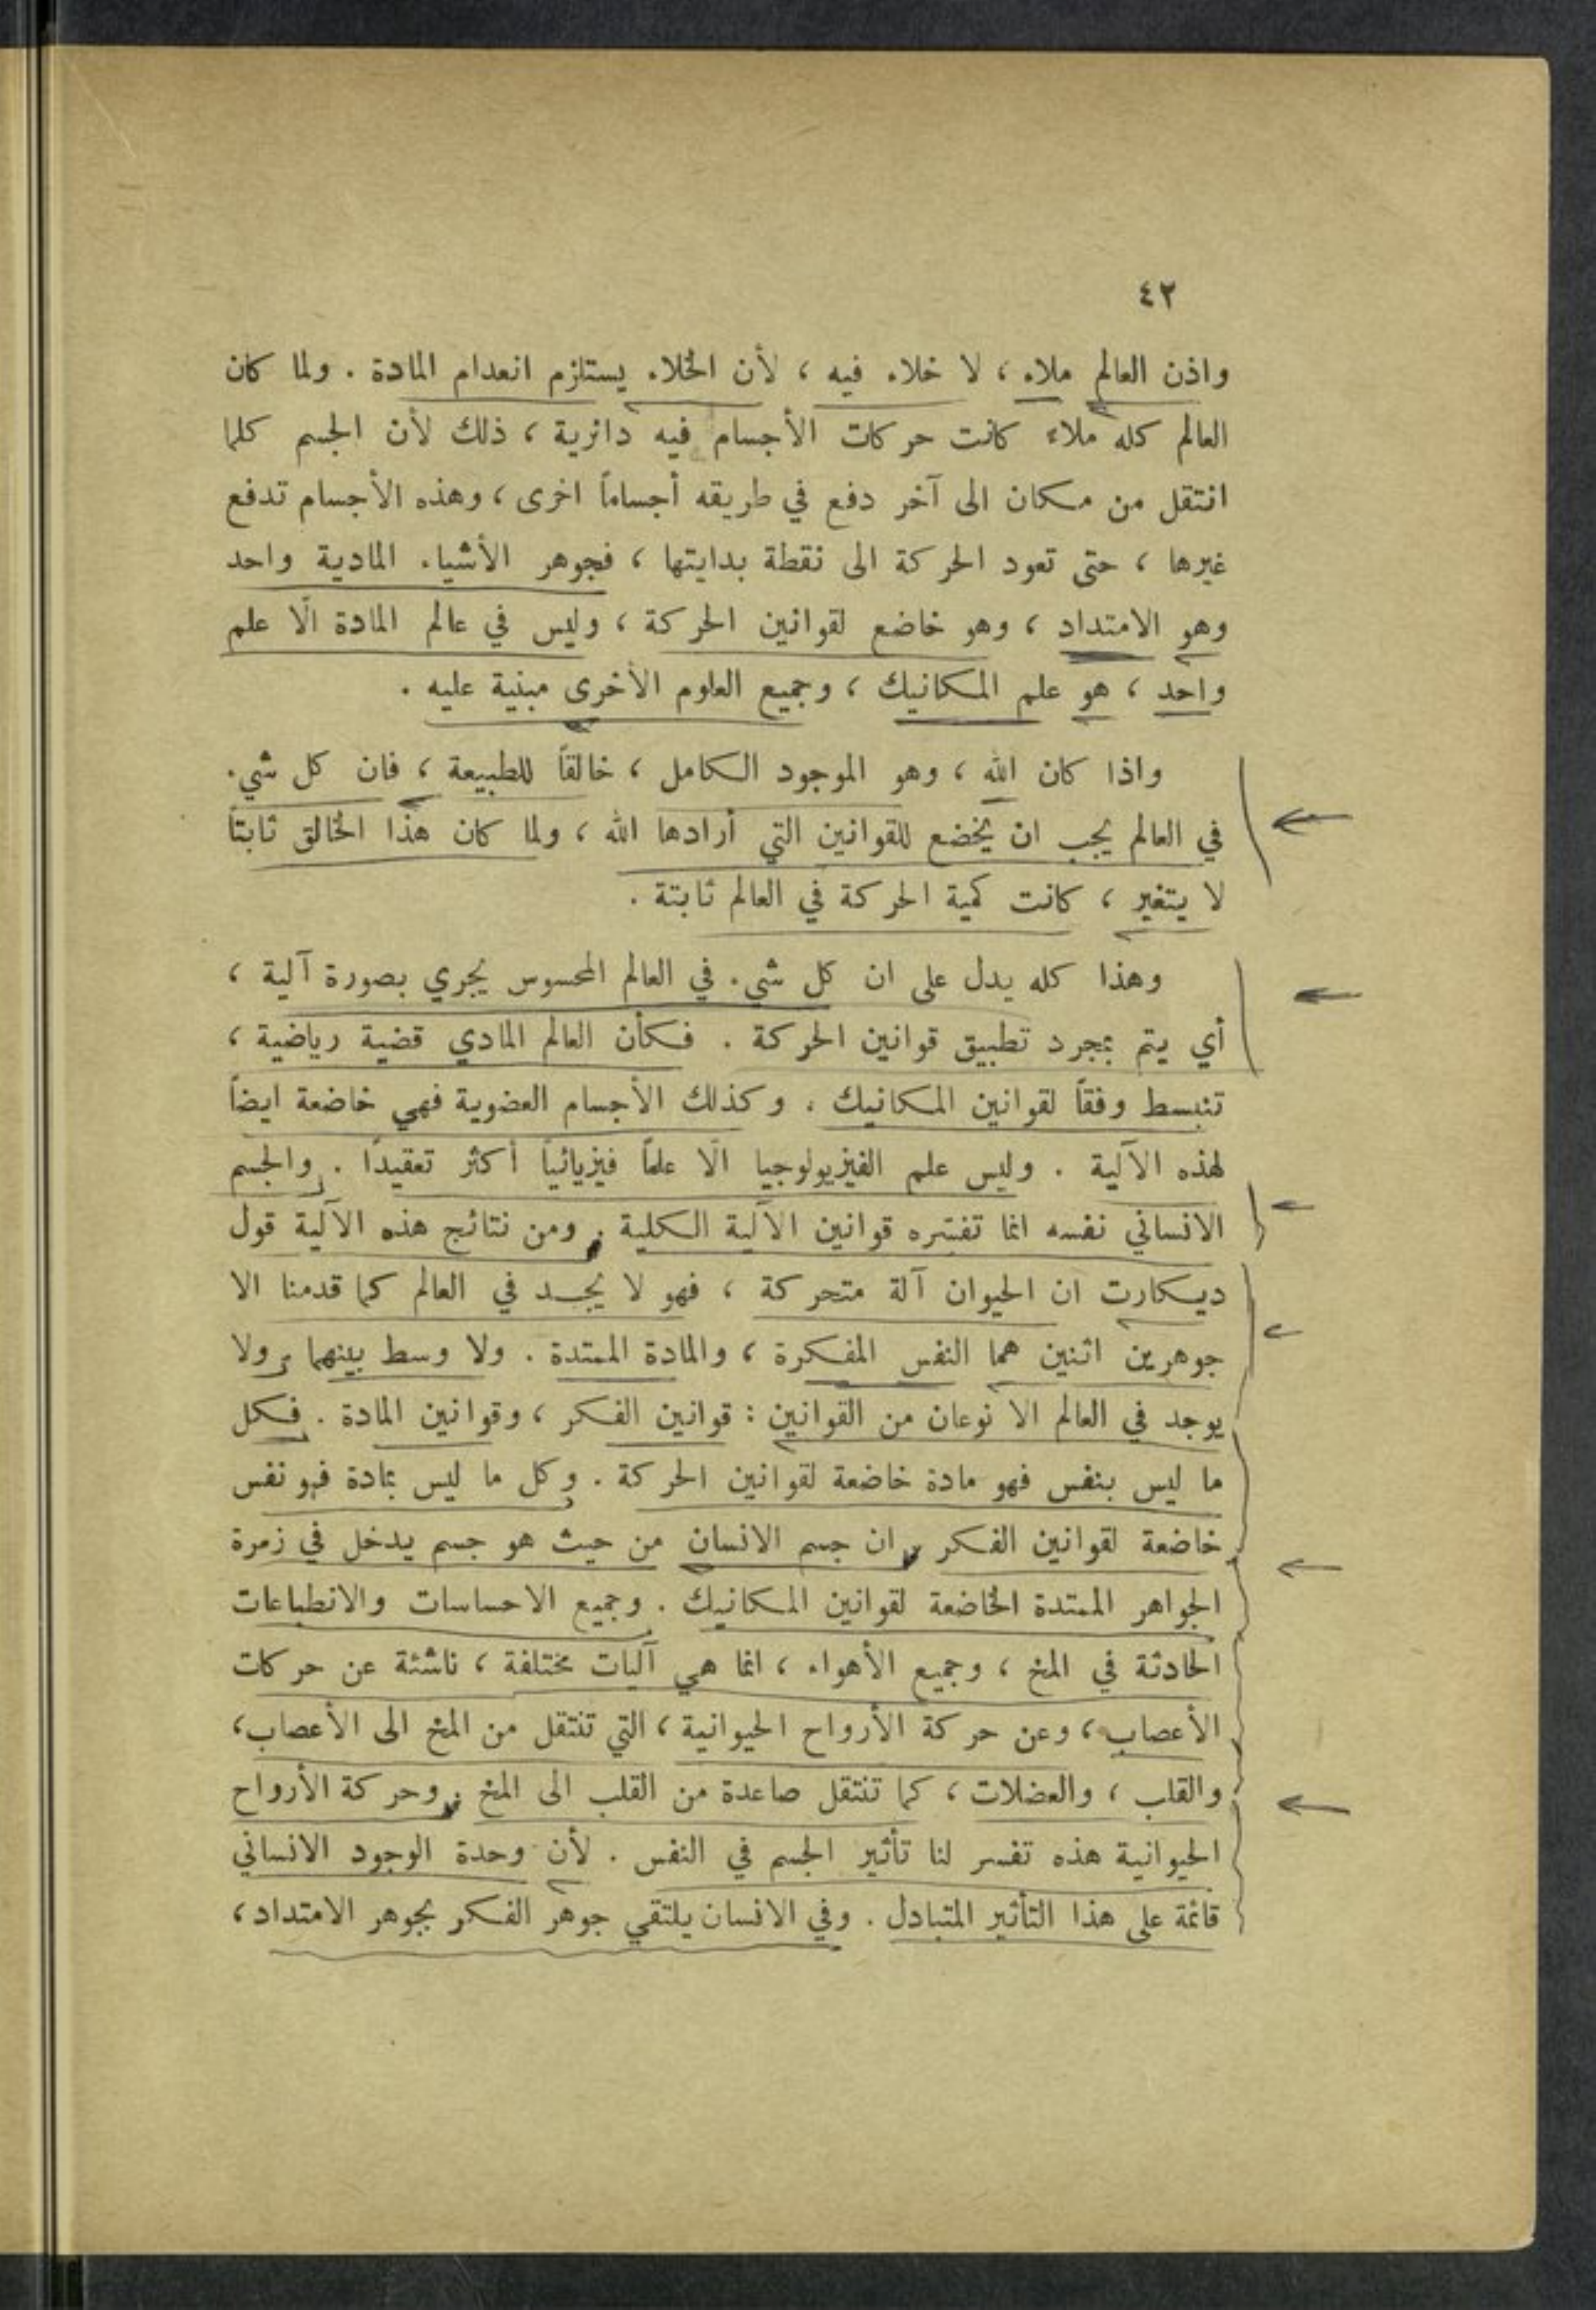 ٤٢
واذن العالم ملاء ، لا خلاء فيه ، لأن الخلاء يستلزم انعدام المادة . ولما كان
العالم كله ملاء كانت حركات الأجسام فيه دائرية ، ذلك لأن الجسم كلما
انتقل من مكان الى آخر دفع في طريقه أجساماً اخرى ، وهذه الأجسام تدفع
غيرها ، حتى تعود الحركة الى نقطة بدايتها ، فجوهر الأشياء المادية واحد
وهو الامتداد ، وهو خاضع لقوانين الحركة ، وليس في عالم المادة الّا علم
واحد ، هو علم المكانيك ، وجميع العلوم الأخرى مبنية عليه .
واذا كان الله ، وهو الموجود الكامل ، خالقاً للطبيعة ، فان كل شيء
في العالم يجب ان يخضع للقوانين التي أرادها الله ، ولما كان هذا الخالق ثابتاً
لا يتغير ، كانت كمية الحركة في العالم ثابتة .
وهذا كله يدل على ان كل شيء في العالم المحسوس يجري بصورة آلية ،
أي يتم بمجرد تطبيق قوانين الحركة . فكأن العالم المادي قضية رياضية ،
تنبسط وفقاً لقوانين المكانيك . وكذلك الأجسام العضوية فهي خاضعة ايضاً
لهذه الآلية . وليس علم الفيزيولوجيا الّا علماً فيزيائياً أكثر تعقيداً . والجسم
الانساني نفسه انما تفسّره قوانين الآلية الكلية . ومن نتائج هذه الآلية قول
ديكارت ان الحيوان آلة متحركة ، فهو لا يجد في العالم كما قدمنا الا
جوهرين اثنين هما النفس المفكرة ، والمادة الممتدة . ولا وسط بينهما . ولا
يوجد في العالم الا نوعان من القوانين : قوانين الفكر ، وقوانين المادة . فكل
ما ليس بنفس فهو مادة خاضعة لقوانين الحركة . وكل ما ليس بمادة فهو نفس
خاضعة لقوانين الفكر . ان جسم الانسان من حيث هو جسم يدخل في زمرة
الجواهر الممتدة الخاضعة لقوانين المكانيك . وجميع الاحساسات والانطباعات
الحادثة في المخ ، وجميع الأهواء ، انما هي آليات مختلفة ، ناشئة عن حركات
الأعصاب ، وعن حركة الأرواح الحيوانية ، التي تنتقل من المخ الى الأعصاب ،
والقلب ، والعضلات ، كما تنتقل صاعدة من القلب الى المخ . وحركة الأرواح
الحيوانية هذه تفسر لنا تأثير الجسم في النفس . لأن وحدة الوجود الانساني
قائمة على هذا التأثير المتبادل . وفي الانسان يلتقي جوهر الفكر بجوهر الامتداد ،